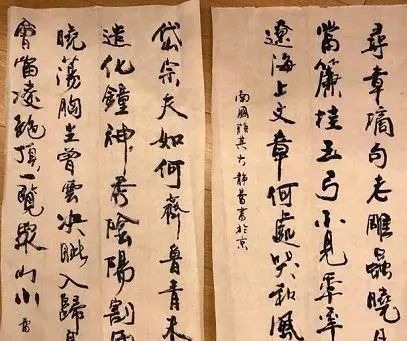 尋章摘句老雕蟲曉月
當簾挂玉弓不見年年
遼海上文章何處哭秋風
岱宗夫如何齊魯青未
造化鐘神秀陰陽割昏
曉蕩胸生曾雲決眦入歸鳥
會當凌絶頂一覽衆山小